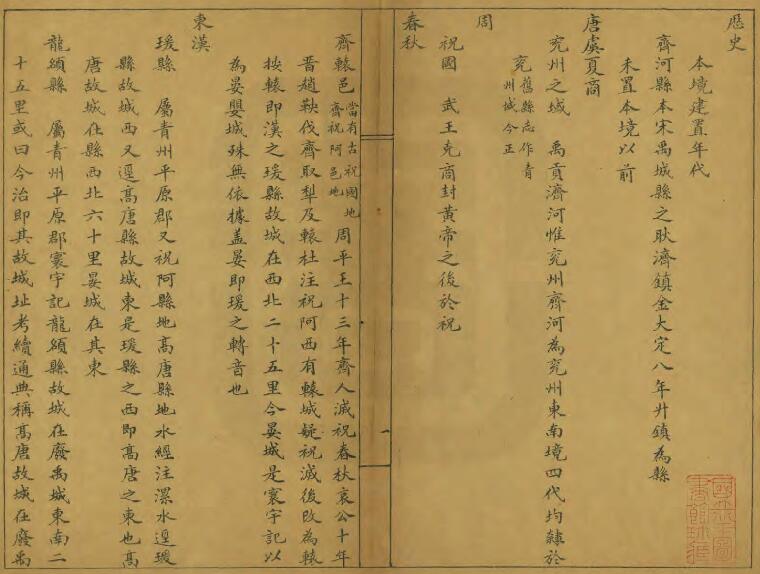 歷史
本境建置年代
齊河縣本宋禹城縣之耿濟鎮金大定八年升鎮為縣
未置本境以前
唐虞夏商
兗州之域　禹貢濟河惟兗州齊河為兗州東南境四代均隸於
兗舊縣志作青州城今正
周
祝國　武王克商封黃帝之後於祝
春秋
齊轅邑當有古祝國地齊祝阿邑地周平王十三年齊人滅祝春秋哀公十年
晉趙鞅伐齊取犁及轅杜注祝阿西有轅城疑祝滅後改為轅
按轅即漢之瑗縣故城在西北二十五里今晏城是寰宇記以
為晏嬰城殊無依據蓋晏即瑗之轉音也
東漢
瑗縣　屬青州平原郡又祝阿縣地高唐縣地水經注漯水逕瑗
縣故城西又逕高唐縣故城東是瑗縣之西即高唐之東也高
唐故城在縣西北六十里晏城在其東
龍頟縣　屬青州平原郡寰宇記龍頟縣故城在廢禹城東南二
十五里或曰今治即其故城址考續通典稱高唐故城在廢禹